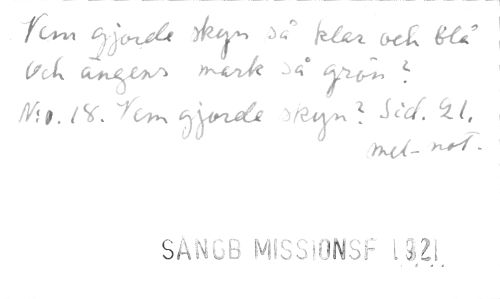 Vem gjorde skyn så klar och blå
och ängens mark så grön?
N:o. 18. Vem gjorde skyn? Sid. 21.
mel-not.
SÅNGB MISSIONSF 1921